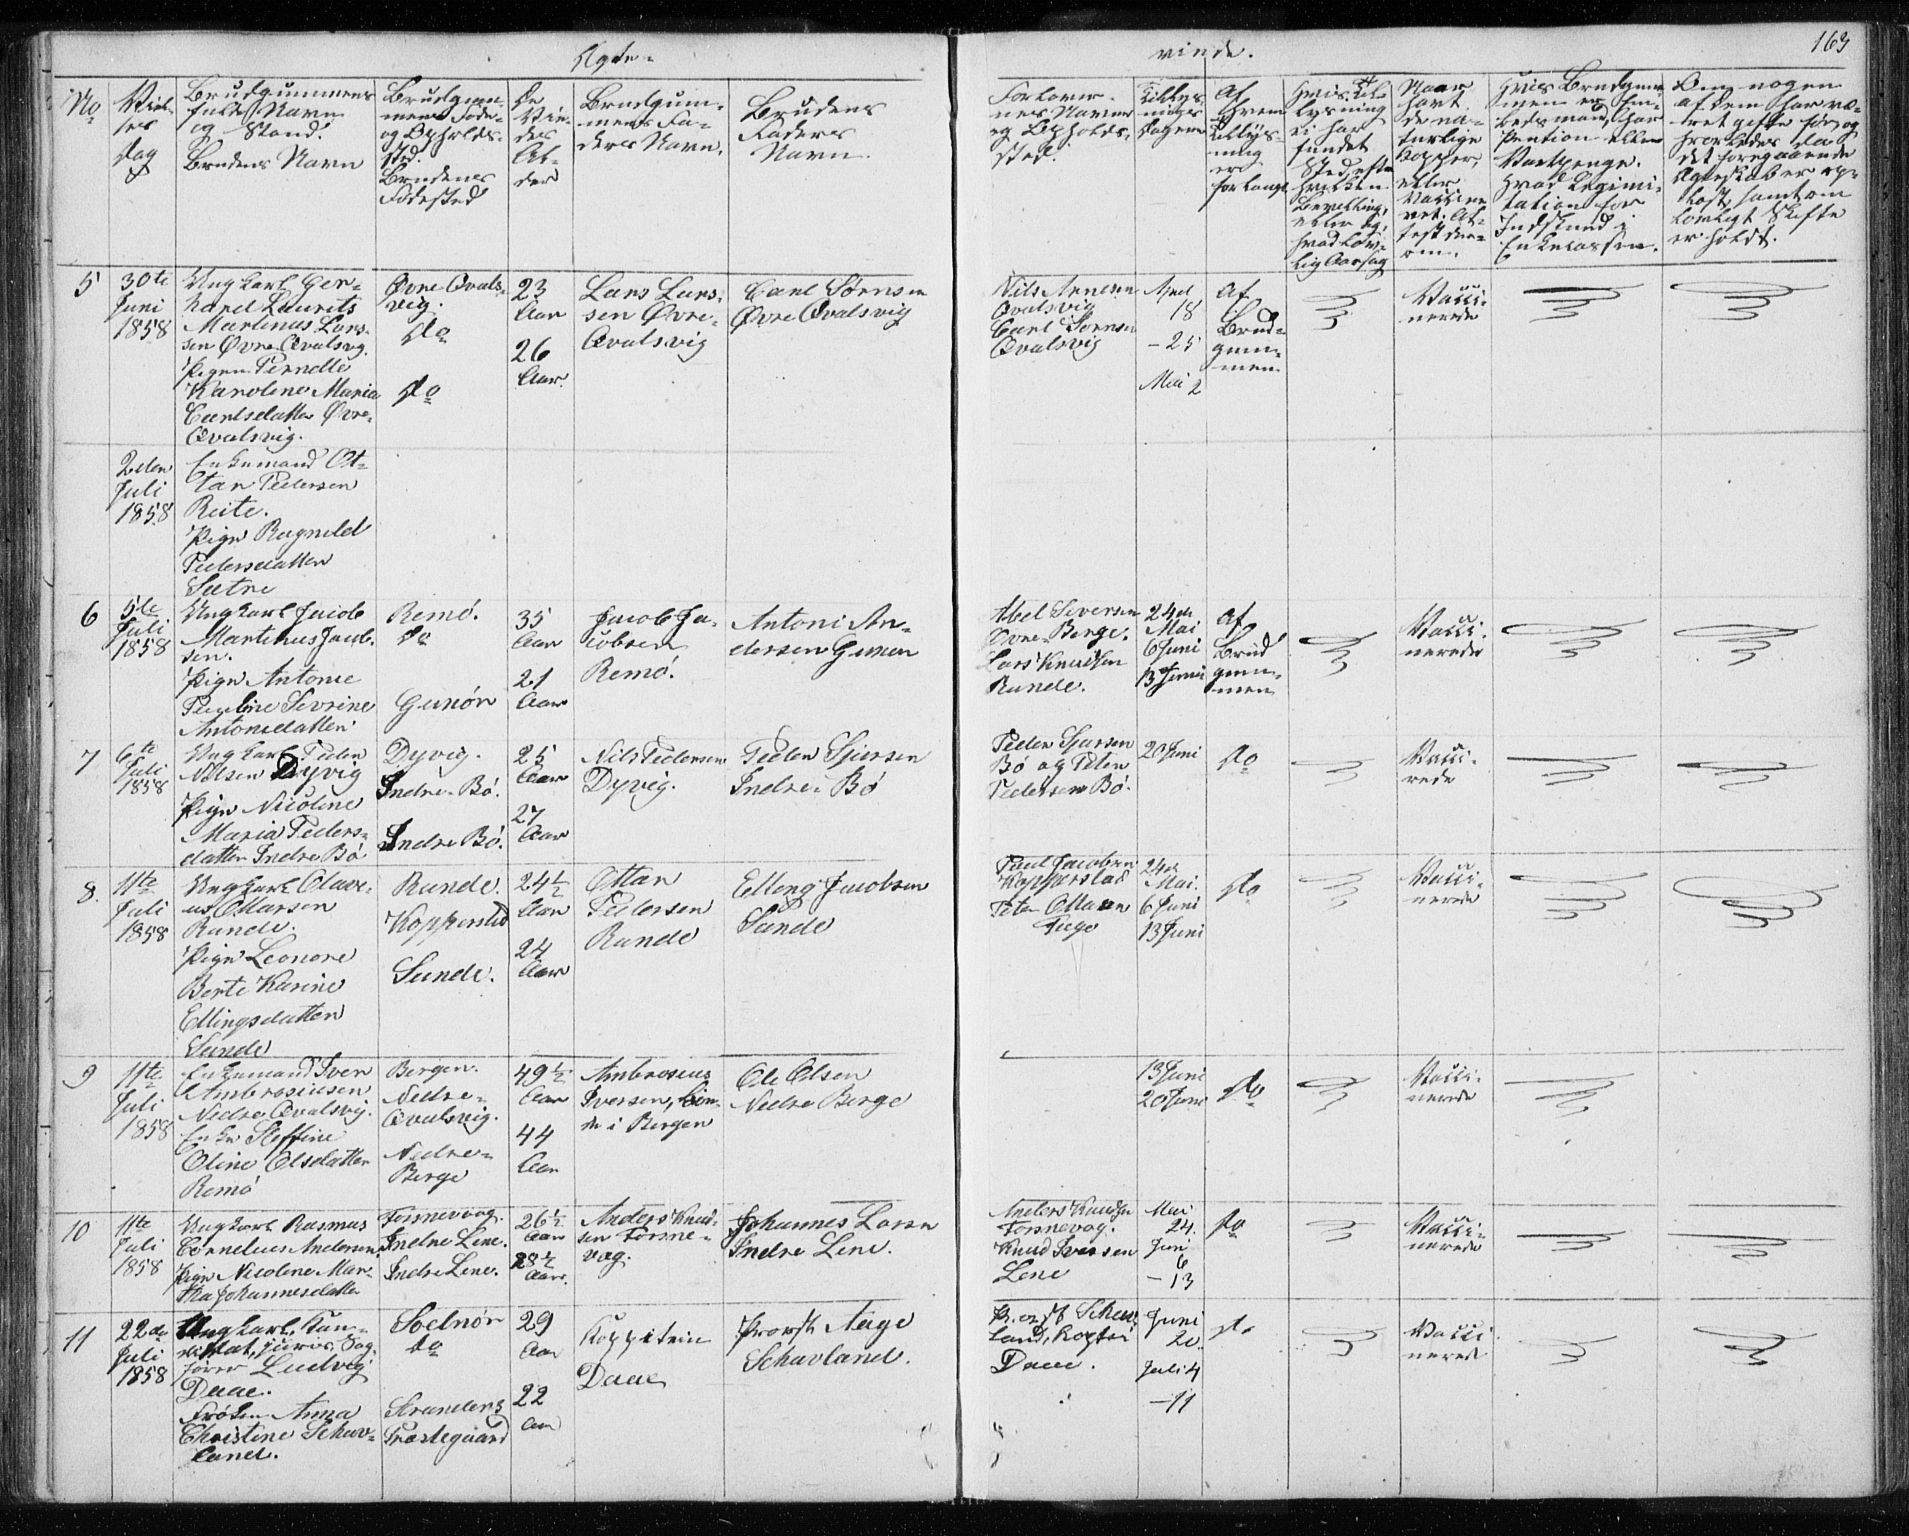 Ægte-
viede.
163
No
Viel-
ses
Dag
Brudgummens
fulde Navn
og Stand.
Brudens Navn
Brudgum-
mens Føde-
og Opholds-
sted.
Brudenes
Fødested
De
Vie-
des
Al-
der
Brudgum-
mens Fa-
ders Navn.
Brudens
Faders
Navn.
Forlover-
nes Navne
og Opholds-
sted.
Tillys-
nings
Dagene
Af
hvem
Tillys-
ning
er
forlangt
Hvis Til-
lysning
ei har
fundet
Sted, efter
hvilken
Bevilling,
eller og,
hvad lov-
lig Aarsag
Naar
havt
de na-
turlige
Kopper,
eller
Vaccine-
ret. At-
test der-
om.
Hvis Brudgum-
men er Em-
bedsmand, har
Pention eller
Vartpenge.
Hvad Legimi-
tation for
Indskud i
Enkecassen.
Om nogen
af dem har væ-
ret gifte før, og
hvorledes da
det foregaaende
Ægteskab er op-
løst, samt om
lovligt Skifte
er holdt.
5
30te
Juni
1858
Ungkarl Ger-
hard Laurits
Martinus Lars-
sen Øvre Qvalsvg.
Pigen Pernelle
Karoline Maria
Carlsdatter Øvre-
Qvalsvig.
Øvre Qvals-
vig.
do
do
23
Aar
26
Aar.
Lars Lars-
sen Øvre-
Qvalsvig
Carl Sørnsen
Øvre Qvalsvig
Nils Arnesen
Qvalsvig
Carl Sørnsen
Qvalsvig
April
18
- 25
Mai 2
af
Brud-
gum-
men
Vacci-
nerede
2den
Juli
1858
Enkemand Ot-
tar Pedersen
Reite.
Pige Ragnild
Pedersdatter
Sætre
6
5te
Juli
1858
Ungkarl Jacob
Martinus Jacob-
sen.
Pige Antonie
Pauline Sevrine
Antonsdatter
Remø.
do
Gunør
35
Aar
21
Aar
Jacob Ja-
cobsen
Remø.
Antoni An-
dersen Gunør
Abel Seversen
Øvre-Berge.
Lars Knudsen
Runde.
24de
Mai
6 Juni
13 Juni
af
Brud
gum-
men
Vacci-
nerede
7
6te
Juli
1858
Ungkarl Peder
Nilsen Dyvig
Pige Nicoline
Maria Peders-
datter Indre Bø
Dyvig.
Indre-Bø.
Indre Bø.
25
Aar
27
Aar
Nils Pedersen
Dyvig.
Peder Sjursen
Indre-Bø
Peder Sjursen
Bø og Peter
Pedersen Bø.
20 Juni
do
Vacci-
rede
8.
11te
Juli
1858
Ungkarl Olave-
us Ottarsen
Runde.
Pige Leonore
Berte Karine
Ellingsdatter
Sande
Runde.
Kopperstad
Sande.
24½
Aar
24
Aar
Ottar
Pedersen
Runde
Elling Jacobsen
Sande
Paul Jacobsen
Kopperstad
Peter Ottarsen
24de
Mai.
6 Juni
13 Juni
do
Vacci-
nerede
9
11te
Juli
1858
Enkemand Iver
Ambrosiusen
Nedre Qvalsvig.
Enke Steffine
Oline Olsdatter
Remø
Bergen.
Nedre-
Qvalsvig.
Nedre-
Berge
49½
Aar
44
Aar
Ambrosius
Iversen,
i Bergen
Ole Olsen
Nedre Berge
13 Juni
20 Juni
do
Vacci-
nerede
10
11te
Juli
1858
Ungkarl Rasmus
Cornelius Andersen
Pige Nicoline Mar-
tha Johannesdatter
Fosnevaag.
Indre Leine.
Indre Leine.
26½
Aar
28½
Aar.
Anders Knud-
sen Fosne-
vag.
Johannes Larsen
Indre Leine.
Anders Knudsen
Fosnevag.
Knud Iversen
Leine
Mai
24.
Juni
6
- 13
do
Vacci-
nerede
11
22de
Juli
1858
Ungkarl, Kan-
didat, juris, Sag-
fører Ludvig
Daae.
Frøken Anna
Christine Schav-
land.
Solnør
do
Strandens
Præstegaard
29
Aar
22
Aar
Kaptein
Daae
Provst Aage
Schavland.
Provst Schav-
land, Captei
Daae.
Juni
20.
Juli 4
- 11
do
Vacci
nerede